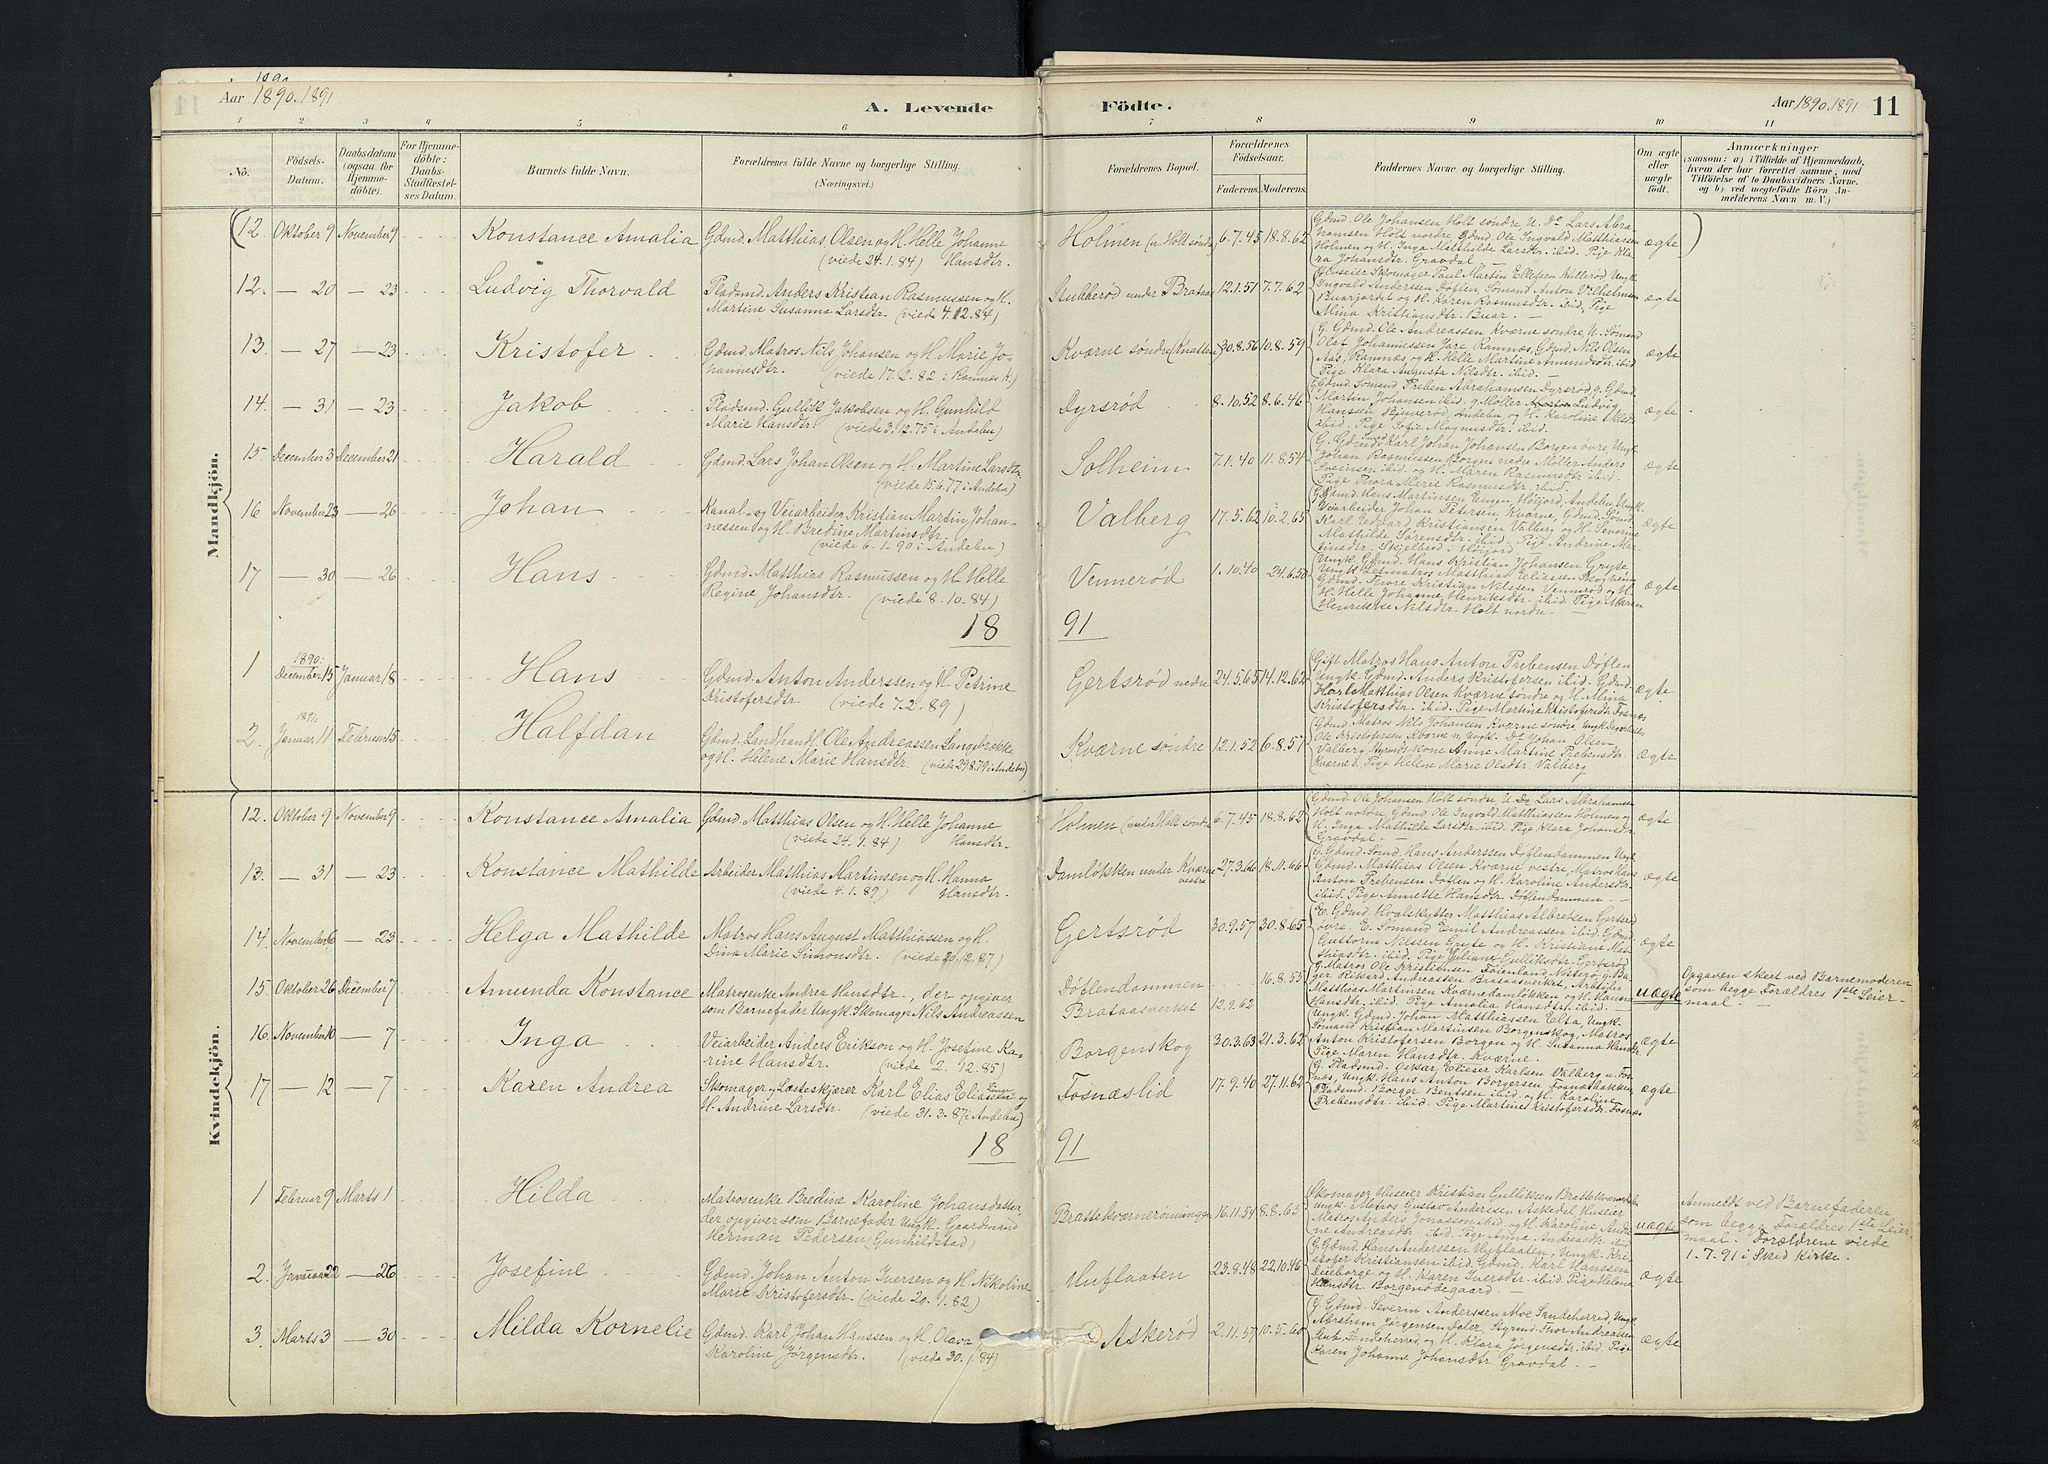 Aar 1890. 1891
A. Levende Födte.
Aar 1890. 1891
11
1 2 3 4 5 6 7 8 9 10 11
No.
Födsels-Datum.
Daabsdatum (ogsaa for Hjemme-döbte).
For Hjemme-döbte: Daabs-Stadfæstel-ses Datum.
Barnets fulde Navn.
Forældrenes fulde Navne og borgerlige Stilling. (Næringsvei.)
Forældrenes Bopæl.
Forældrenes Födselsaar.
Faderens. Moderens.
Faddernes Navne og borgerlige Stilling.
Om ægte eller uægte födt.
Anmærkninger
(saasom: a) i Tilfælde af Hjemmedaab,
hvem der har forrettet samme, med
Tilföielse af to Daabsvidners Navne.
og b) ved uægtefödte Börn An-
melderens Navn m. V.)
Mandkjön.
(12. Oktober 9 November 9 Konstance Amalia Gdmd. Matthias Olsen og H. Helle Johanne
(viede 24.1.84) Hansdtr.
Holmen (u. Holt søndre) 6.7.45 18.8.62
Gdmd. Ole Johansen Holt søndre, U. Do Lars Abra-
hamsen Holt nordre, Gdmd. Ole Ingvald Matthiassen
Holmen og H. Inga Mathilde Larsdtr. ibid. Pige Kla-
ra Johansdtr. Gravdal. —
ægte )
12. — 20 — 23 Ludvig Thorvald Pladsmd. Anders Kristian Rasmussen og H.
Martine Susanna Larsdtr. (viede 4.12.84)
Stubberød under Brataas 12.1.51 7.7.62
Huseier Skomager Paul Martin Ellefsen Kullerød, Ungk.
Ingvald Anderssen Døflen, Sømand Anton Vilhelmsen
Buarjordet og H. Karen Rasmusdtr. ibid, Pige
Mina Kristiansdtr. Buar. —
ægte
13. — 27 — 23 Kristofer Gdmd. Matros Nils Johansen og H. Marie Jo-
hannesdtr. (viede 17.2.82 i Ramnæs K.)
Kværne søndre (Knatten) 30.8.56 10.8.59
G. Gdmd. Ole Andreassen Kværne søndre, U. Sømand
Olaf Johannessen Jare Ramnæs, Gdmd. Nils Olsen
Aas, Ramnæs og H. Helle Martine Amundsdtr. ibid
Pige Klara Augusta Nilsdtr. ibid. —
ægte
14. — 31 — 23 Jakob Pladsmd. Gullik Jakobsen og H. Gunhild
Marie Hansdtr. (viede 3.12.75 i Andebu)
Dyrsrød 8.10.52 8.6.46
G. Gdmd. Sømand Preben Abrahamsen Dyrsrød, g. Gdmd.
Martin Johansen ibid. g. Møller Ludvig
Hanssen Bjuerød, Andebu og H. Karoline Olsdtr.
ibid. Pige Sofie Magnusdtr. ibid.
ægte
15. December 3 December 21 Harald Gdmd. Lars Johan Olsen og H. Martine Larsdtr.
(viede 15.6.77 i Andebu)
Solheim 7.1.40 11.8.54
G. Gdmd. Karl Johan Johansen Borgen øvre, Ungk.
Johan Rasmussen Borgen nedre Møller Anders
Sveinsen ibid. og H. Maren Rasmusdtr. ibid.
Pige Thora Marie Rasmusdtr. ibid.
ægte
16 November 23 — 26 Johan Kanal- og Veiarbeider Kristian Martin Johan-
nessen og H. Bredine Martinsdtr.
(viede 6.1.90 i Andebu)
Valberg 17.5.62 10.2.65
Gdmd. Hans Martinsen Engen, Høijord, Andebu, Ungk.
Veiarbeider Johan Petersen Kværne, Gdmd. Sømd.
Karl Kristiansen Valberg og H. Severine
Mathilde Sørensdtr. ibid. Pige Andrine Mar-
tinsdtr. Skjelbred i Høijord.
ægte
17 — 30 — 26 Hans Gdmd. Matthias Rasmussen og H. Helle
Regine Johansdtr. (viede 8.10.84)
Vennerød 1.10.40 24.6.50
Ungk. Gdmd. Hans Kristian Johansen Gryte
Ungk. Letmatros Matthias Eliassen Skoghem
Gdmd. Thore Kristian Nilsen Vennerød og H.
H. Helle Johanne Henriksdtr. ibid. Pige Maren
Henrikke Nilsdtr. Holt nordre. —
ægte
18 91
1 1890: December 15 Januar 18 Hans Gdmd. Anton Anderssen og H. Petrine
Kristofersdtr. (viede 7.2.89)
Gertsrød nedre 24.5.65 14.12.62
Gift Matros Hans Anton Prebensen Døflen
Ungk. Gdmd. Anders Kristofersen ibid. Gdmd.
Matthias Olsen Kværne søndre og H. Mina
Kristofersdtr. ibid. Pige Martine Kristofersdtr. Fosnæs
ægte
2. 1891: Januar 11 Februar 15 Halfdan Gdmd. Landhandl. Ole Andreassen Langebrække
og H. Helene Marie Hansdtr. (viede 29.8.79 i Andebu)
Kværne søndre 12.1.52 6.8.57
Gdmd. Matros Nils Johansen Kværne søndre, Ungk.
Ole Kristofersen Kværne n, Ungk. Do Johan Olsen
Valberg Kone Anne Martine Prebensdtr.
Kværne s. Pige Helene Marie Olsdtr. Valberg
ægte
Kvindekjön.
12. Oktober 9 November 9 Konstance Amalia Gdmd. Matthias Olsen og H. Helle Johanne
(viede 24.1.84) Hansdtr.
Holmen (under Holt søndre) 6.7.45 18.8.62
Gdmd. Ole Johansen Holt søndre, U. Do Lars Abrahamsen
Holt nordre, Gdmd. Ole Ingvald Matthiassen Holmen og
H. Inga Mathilde Larsdtr. ibid. Pige Klara Johansdtr.
Gravdal. —
ægte
13. — 31 — 23 Konstance Mathilde Arbeider Matthias Martinsen og H. Hanna
(viede 4.1.89) Hansdtr.
Damløkken under Kværne vestre 27.3.66 18.11.66
G. Gdmd. Sømd. Hans Anderssen Døflendammen, Ungk.
Gdmd. Matthias Olsen Kværne vestre, Matros Hans
Anton Prebensen Døflen og H. Karoline Andersdtr.
ibid. Pige Annette Hansdtr. Døflendammen. —
ægte
14. November 6 — 23 Helga Mathilde Matros Hans August Matthiassen og H.
Dina Marie Simonsdtr. (viede 20.12.87)
Gertsrød 30.9.57 30.8.65
E. Gdmd. Hvalskytter Matthias Albretsen Gertsrød
øvre. E. Sømand Emil Andreassen ibid. Gdmd.
Guttorm Nilssen Gryte og H. Kristiane Mat-
thiasdtr. ibid. Pige Juliane Gulliksdtr. Gertsrød
ægte
15. Oktober 26 December 7 Amunda Konstance Matrosenke Andrea Hansdtr., der opgiver
som Barnefader Ungk. Skomager Nils Andreassen
Døflendammen
Brataasverket 12.9.62 16.8.55
G. Matros Ole Kristiansen Føienland, Nøtterø, g. Ba-
ger Rikard Andreassen Brataasverket, Arbeider
Matthias Martinsen Kværnedamløkken og H. Hanna
Hansdtr. ibid. Pige Amalia Hansdtr. ibid.
uægte
Opgaven skeet ved Barnemoderen
som begge Forældres 1ste Leier-
maal. —
16. November 10 — 7 Inga Veiarbeider Anders Erikson og H. Josefine Ka-
rine Hansdtr. (viede 2.12.85)
Borgenskog 30.3.63 21.3.62
Ungk. Gdmd. Johan Matthiassen Elta, Ungk.
Sømand Kristian Martinsen Borgenskog, Matros
Anton Kristofersen Borgen og H. Susanna Hansdtr.
Pige Maren Hansdtr. Kværne.
ægte
17 — 12 — 7 Karen Andrea Skomager og Læsteskjærer Karl Elias Eliassen og
H. Andrine Larsdtr. (viede 31.3.87 i Andebu)
Fosnæslid 17.9.40 27.11.62
G. Pladsmd. Oskar Elieser Karlsen Valberg u. Fos-
næs, Ungk. Hans Anton Borgersen Fosnæsbakken
Pladsmd. Borger Bentsen ibid. og H. Karoline
Prebensdtr. ibid. Pige Martine Kristofersdtr. Fosnæs
ægte
18 91
1 Februar 9 Marts 1 Hilda Matrosenke Bredine Karoline Johansdatter,
der opgiver som Barnefader Ungk. Gaardmand
Herman Pedersen (Gunhildstad)
Brattekværnerønningen 16.11.54 8.8.65
Skomager Huseier Kristian Gulliksen Brattekværnerøn.
Ungk. Matros Gustav Anderssen Askedal, Huseier
Matros Anders Jonassen ibid. og H. Karoline Andrine
Andreasdtr. ibid. Pige Anna Andreasdtr. ibid.
uægte
Anmeldt ved Barnefaderen
som begge Forældres 1ste Leier-
maal. Forældrene viede
1.7.91 i Sked Kirke. —
2. Januar 22 — 26 Josefine Gdmd. Johan Anton Iversen og H. Nikoline
Marie Kristofersdtr. (viede 20.1.82)
Huflaaten 23.8.48 22.10.46
G. Gdmd. Hans Anderssen Huflaaten, Ungk. Kri-
stofer Kristiansen ibid. Gdmd. Karl Hanssen
Leieborge og H. Karen Iversdtr. ibid. Pige Helene
Hansdtr. Borgenødegaard. —
ægte
3. Marts 3 — 30 Milda Kornelie Gdmd. Karl Johan Hanssen og H. Olava
Karoline Jørgensdtr. (viede 30.1.84)
Askerød 2.11.57 10.5.60
G. Gdmd. Severin Anderssen Moe, Sandeherred, Ungk.
Abraham Jørgensen Døler, Styrmd. Thor Andreassen
Stub, Sandeherred og H. Klara Jørgensdtr. ibid. Pige
Karen Johanne Johansdtr. Gravdal. —
ægte